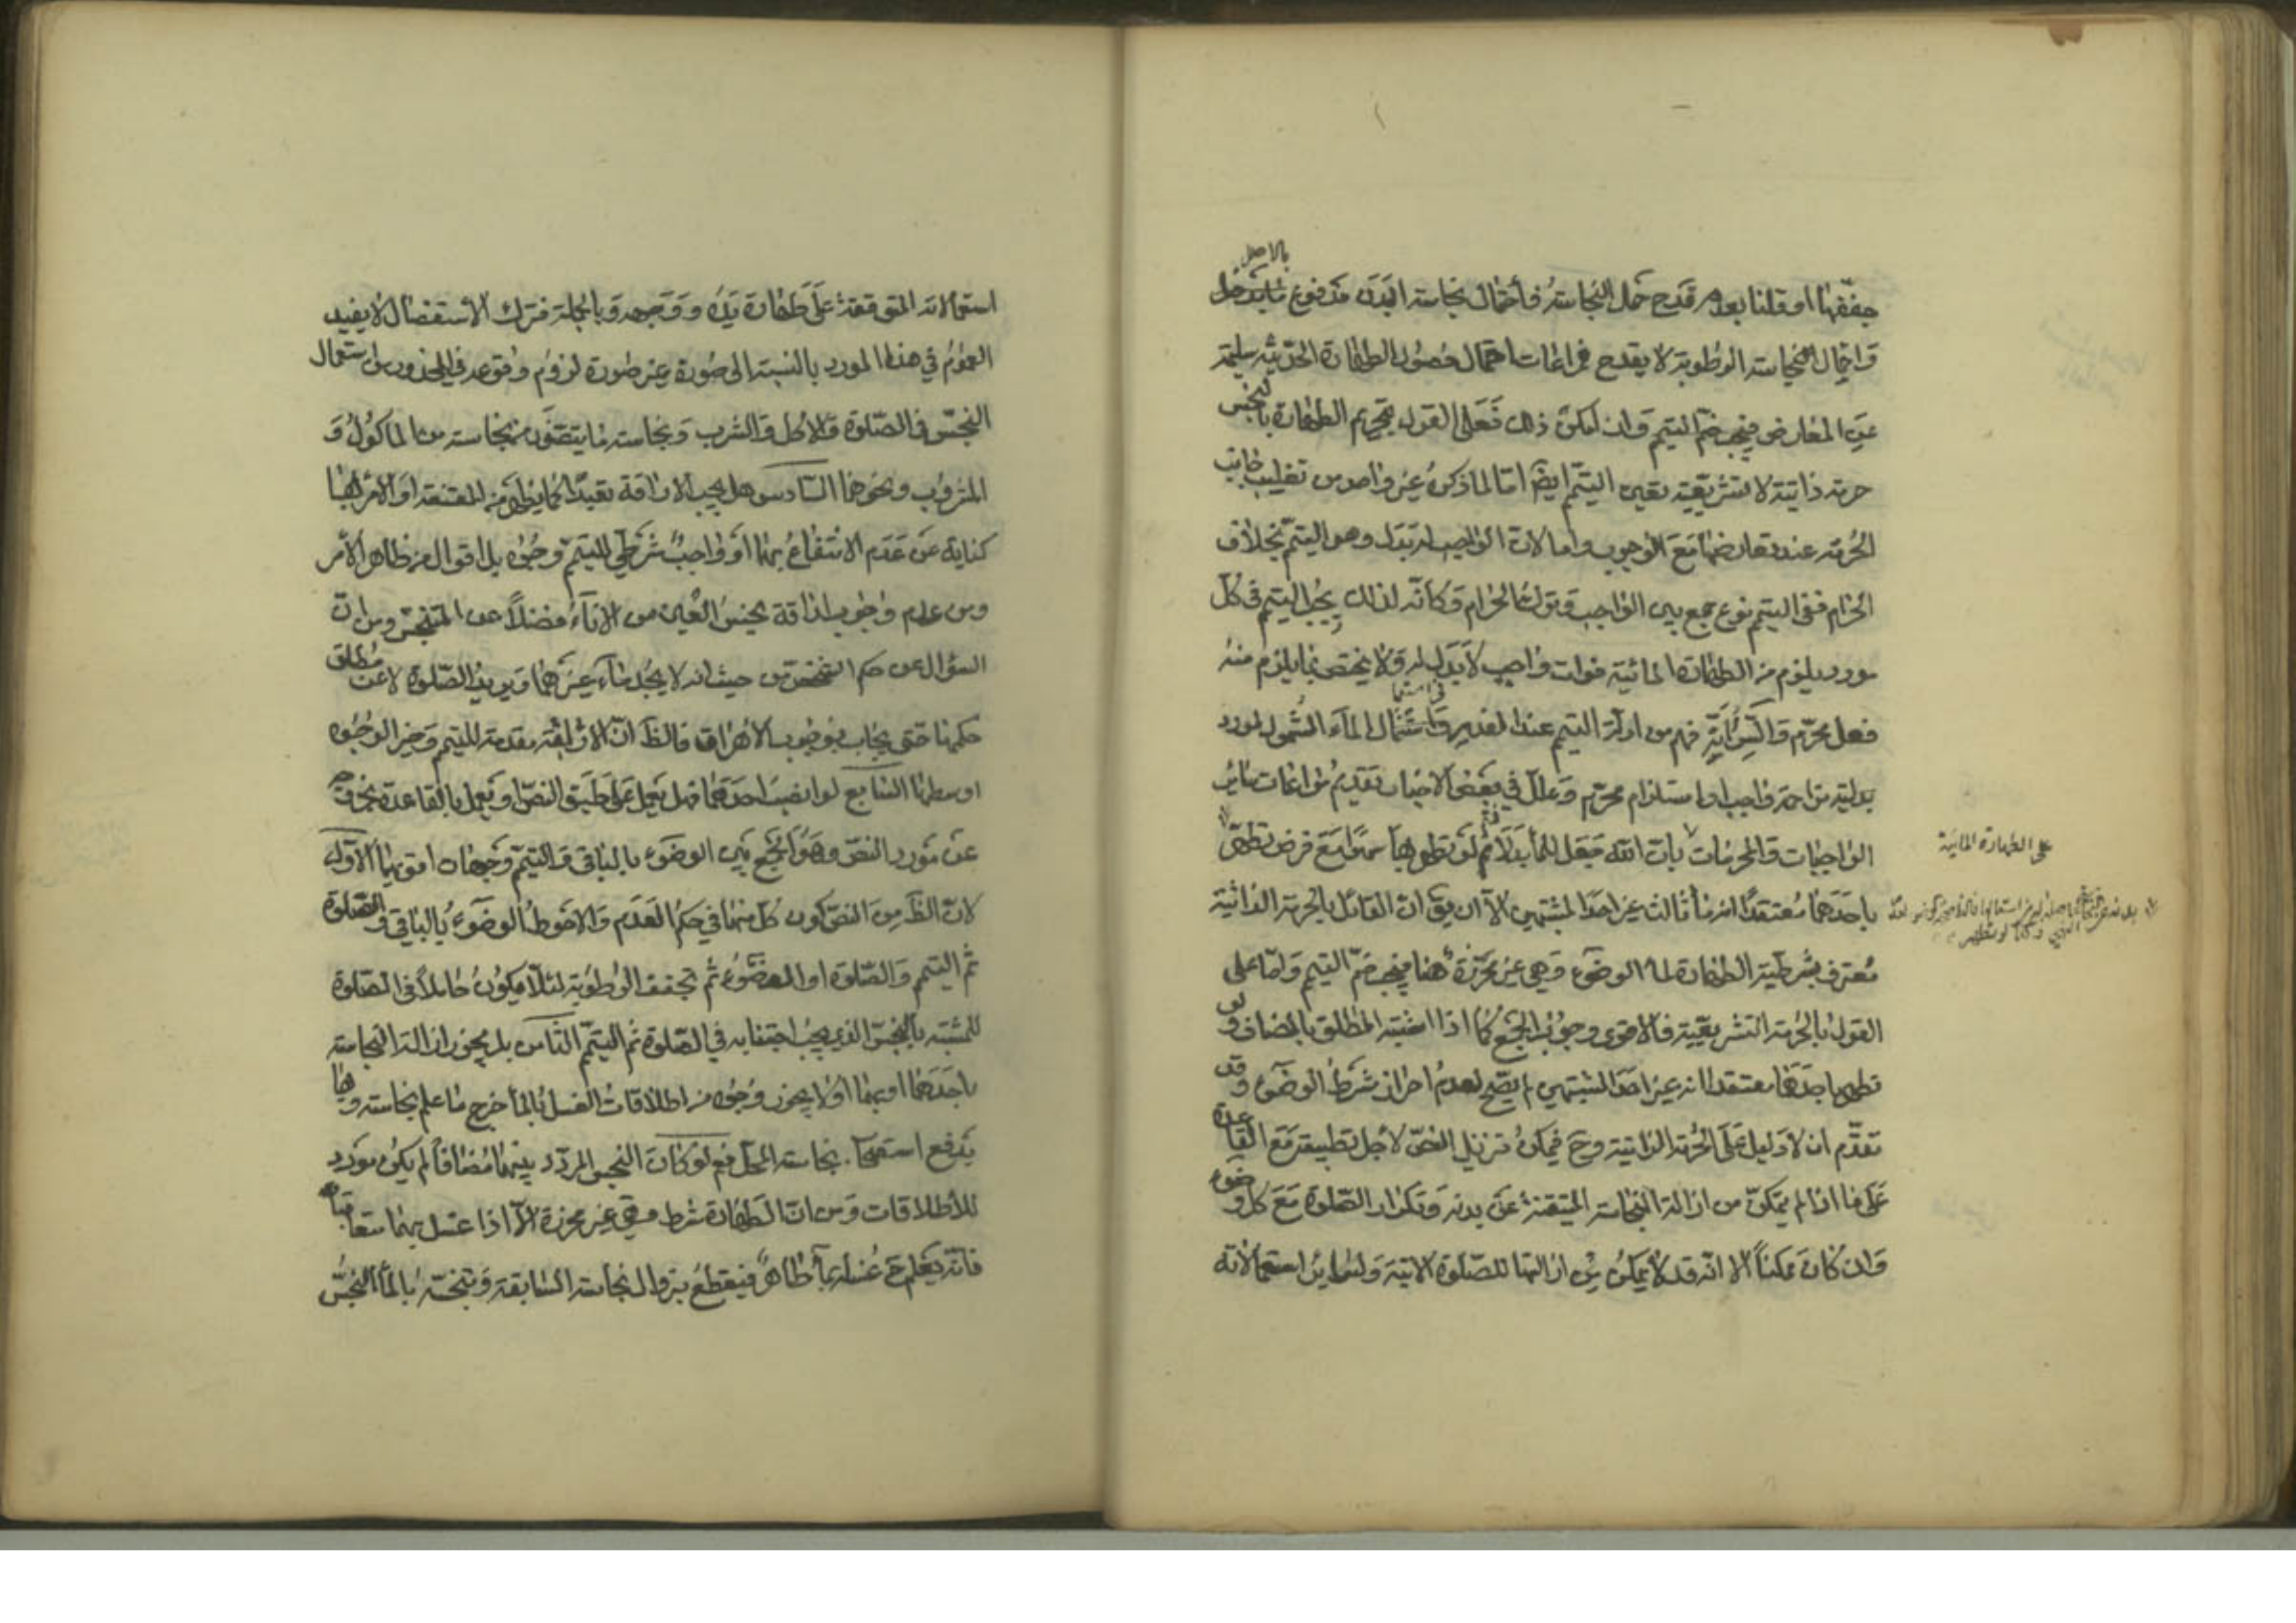 بالاصل
جففها او قلنا بعدم قدح حمل النجاسة فأحتمال نجاسة البدن مدفوع
واحتمال النجاسة الرطوبة لا يقدح فمراعات احتمال حصول الطهارة الحدثية سليمة
عن المعارض فيجب ضم التيمم وان لم يكن ذلك فعلى القول بتحريم الطهارة بالنجس
حرمة ذاتية لا تشريعية تعين التيمم ايضا اما لما ذكره غير واحد من تغليب جانب
الحرمة عند تعارضها مع الوجوب واما لان الواجب له بدل وهو التيمم بخلاف
الحرام ففى التيمم نوع جمع بين الواجب وترك الحرام وكأنه لذلك يجب التيمم فى كل
مورد يلزم من الطهارة المائية فوات واجب لا بدل له ولا يختص بما يلزم منه
فعل محرم والسر انه فهم من ادلة التيمم عند استعمال الماء الشمول لمورد
بدليته مزاحمة واجب او استلزام محرم وعلل في بعض الاخبار تقديم مراعات سائر
الواجبات والمحرمات بان الله جعل للماء بدلا ثم لو تطهر بها سهوا مع فرض تطهر
على الطهارة المائية
باحدهما معتقدا انه ماء ثالث غير احد المشتبهين الا ان يق ان القائل بالحرمة الذاتية
معترف بشرطية الطهارة لماء الوضوء وهي غير محرزة هنا فيجب ضم التيمم واما على
القول بالحرمة التشريعية فالاقوى وجوب الجمع كما اذا اشتبه المطلق بالمضاف ولو
تطهر باحدهما معتقدا انه غير احد المشتبهين لم يصح لعدم احراز شرط الوضوء وقد
تقدم ان لا دليل على الحرمة الذاتية وح فيمكن تنزيل النص لاجل تطبيقه مع القاعدة
على ما اذا لم يتمكن من ازالة النجاسة المتيقنة عن بدنه وتكرار الصلوة مع كل وضوء
وان كان ممكنا الا انه قد لا يمكن من ازالتها للصلوة الاتية ولساير استعمالاته
استعمالاته المتوقفة على طهارة يده ووجهه وبالجملة فترك الاستفصال لا يفيد
العموم في هذا المورد بالنسبة الى صورة غير صورة لزوم وقوعه في المحذور من استعمال
النجس فى الصلوة والاكل والشرب ونجاسة ما يتضرر بنجاسته من الماكول و
المشروب ونحوهما السادس هل يجب الاراقة تعبدا كما يظهر من المقنعة او الامر بها
كناية عن عدم الانتفاع بهما او واجب شرطي للتيمم وجوه بل اقوال من ظاهر الامر
ومن عدم وجوب اراقة نجس العين من الاناء فضلا عن المتنجس ومن ان
السؤال عن حكم الشخص من حيث انه لا يجد ماء غيرهما ويريد الصلوة لا عن مطلق
حكمها حتى يجاب بوجوب الاهراق فالظ ان الاراقة مقدمة للتيمم وخير الوجوه
اوسطها السابع لو انصب احدهما فهل يعمل على طبق النص او يعمل بالقاعدة بخروجه
عن مورد النص وهو الجمع بين الوضوء بالباقي والتيمم وجهان اقويهما الاول
لان الظ من النص كون كل منهما في حكم العدم والاحوط الوضوء بالباقي والصلوة
ثم التيمم والصلوة او الوضوء ثم تجفيف الرطوبة لئلا يكون حاملا فى الصلوة
للمشتبه بالنجس الذي يجب اجتنابه في الصلوة ثم التيمم الثامن هل يجوز ازالة النجاسة
باحدهما او بهما او لا يجوز وجوه من اطلاقات الغسل بالماء خرج ما علم نجاسته وبها
يدفع استصحاب نجاسة المحل نعم لو كان النجس المردد بينهما مضافا لم يكن مورد
للاطلاقات ومن ان الطهارة شرط وهي غير محرزة الا اذا غسل بهما متعاقبا
فانه يعلم ح غسله بماء طاهر فيقطع بزوال النجاسة السابقة وتنجسه بالماء النجس